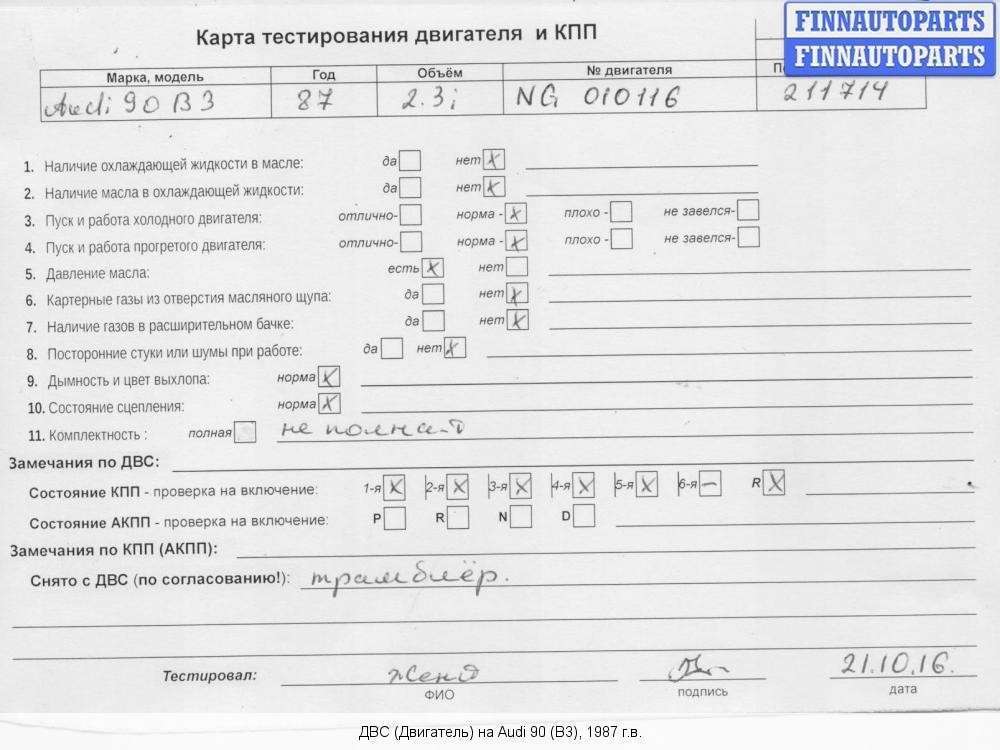 FINNAUTOPARTS
FINNAUTOPARTS
Карта тестирования двигателя и КПП
Марка, модель Год Объём № двигателя
Audi 90 B3 87 2.3i NG 010116 211714
1. Наличие охлаждающей жидкости в масле: да нет x
2. Наличие масла в охлаждающей жидкости: да нет x
3. Пуск и работа холодного двигателя: отлично- норма - x плохо - не завелся-
4. Пуск и работа прогретого двигателя: отлично- норма - x плохо - не завелся-
5. Давление масла: есть x нет
6. Картерные газы из отверстия масляного щупа: да нет x
7. Наличие газов в расширительном бачке: да нет x
8. Посторонние стуки или шумы при работе: да нет x
9. Дымность и цвет выхлопа: норма x
10. Состояние сцепления: норма x
11. Комплектность : полная не полная
Замечания по ДВС:
Состояние КПП - проверка на включение: 1-я x 2-я x 3-я x 4-я x 5-я x 6-я – R x
Состояние АКПП - проверка на включение: P R N D
Замечания по КПП (АКПП):
Снято с ДВС (по согласованию!): трамблёр.
Тестировал: 21.10.16.
ФИО подпись дата
ДВС (Двигатель) на Audi 90 (B3), 1987 г.в.